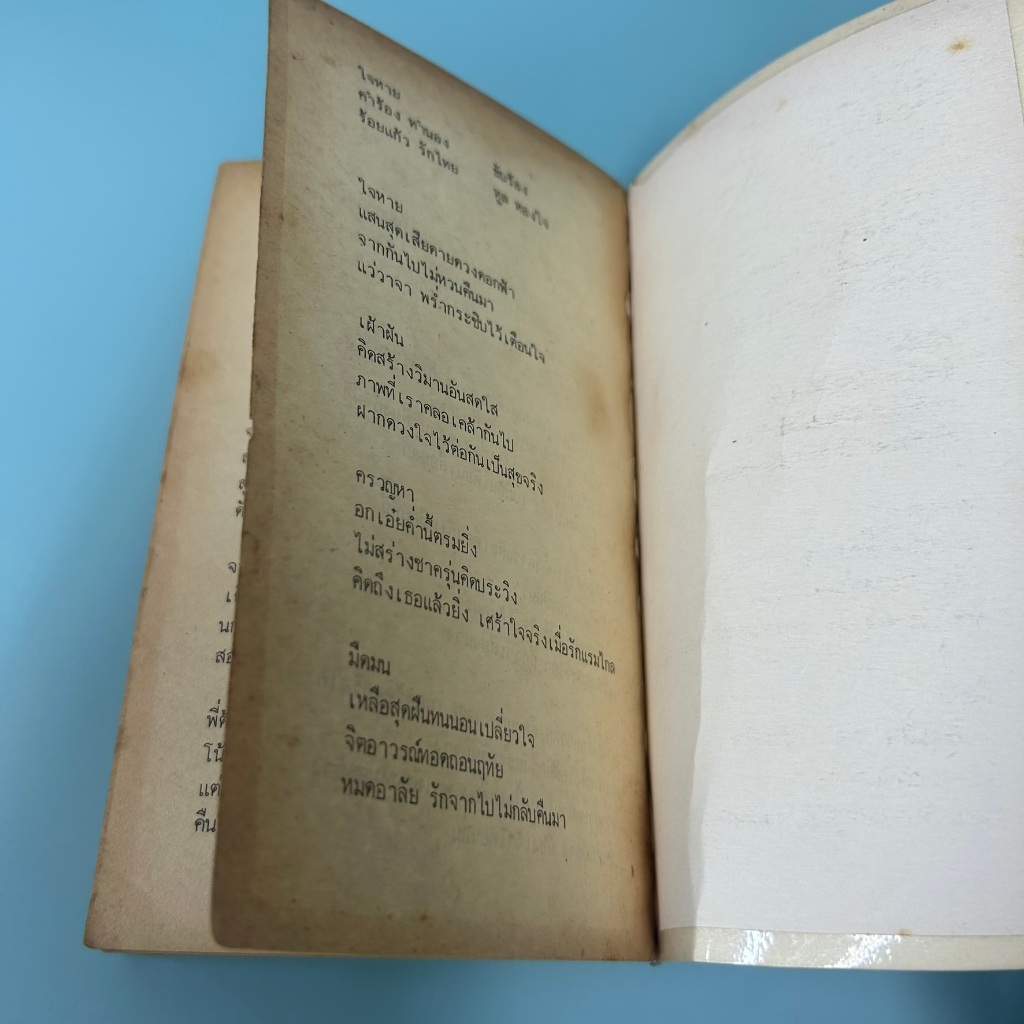 ใจหาย
คำร้อง ทำนอง
ร้อยแก้ว รักไทย
ขับร้อง
ทูล ทองใจ
ใจหาย
แสนสุดเสียดายดวงดอกฟ้า
จากกันไปไม่หวนคืนมา
แว่ววาจา พร่ำกระซิบไว้เตือนใจ
เฝ้าฝัน
คิดสร้างวิมานอันสดใส
ภาพที่เราคลอเคล้ากันไป
ฝากดวงใจไว้ต่อกันเป็นสุขจริง
ครวญหา
อกเอ๋ยค่ำนี้ตรมยิ่ง
ไม่สร่างซาครุ่นคิดประวิง
คิดถึงเธอแล้วยิ่ง เศร้าใจจริงเมื่อรักแรมไกล
มืดมน
เหลือสุดฝืนทนนอนเปลี่ยวใจ
จิตอาวรณ์ทอดถอนฤทัย
หมดอาลัย รักจากไปไม่กลับคืนมา
คืน